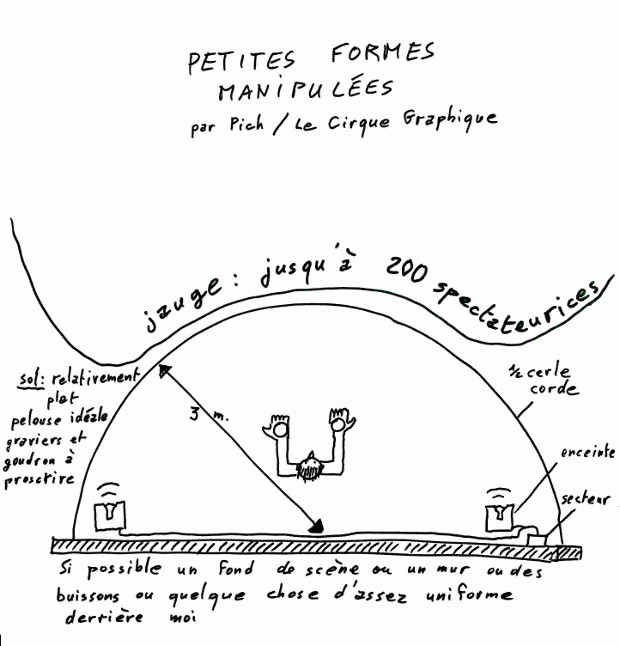 PETITES FORMES
MANIPULÉES
par Pich / Le Cirque Graphique
jauge : jusqu'à 200 spectateurices
sol : relativement
plat
pelouse idéale
graviers et
goudron à
proscrire
3 m.
½ cerle
corde
enceinte
secteur
Si possible un fond de scène ou un mur ou des
buissons ou quelque chose d'assez uniforme
derrière moi